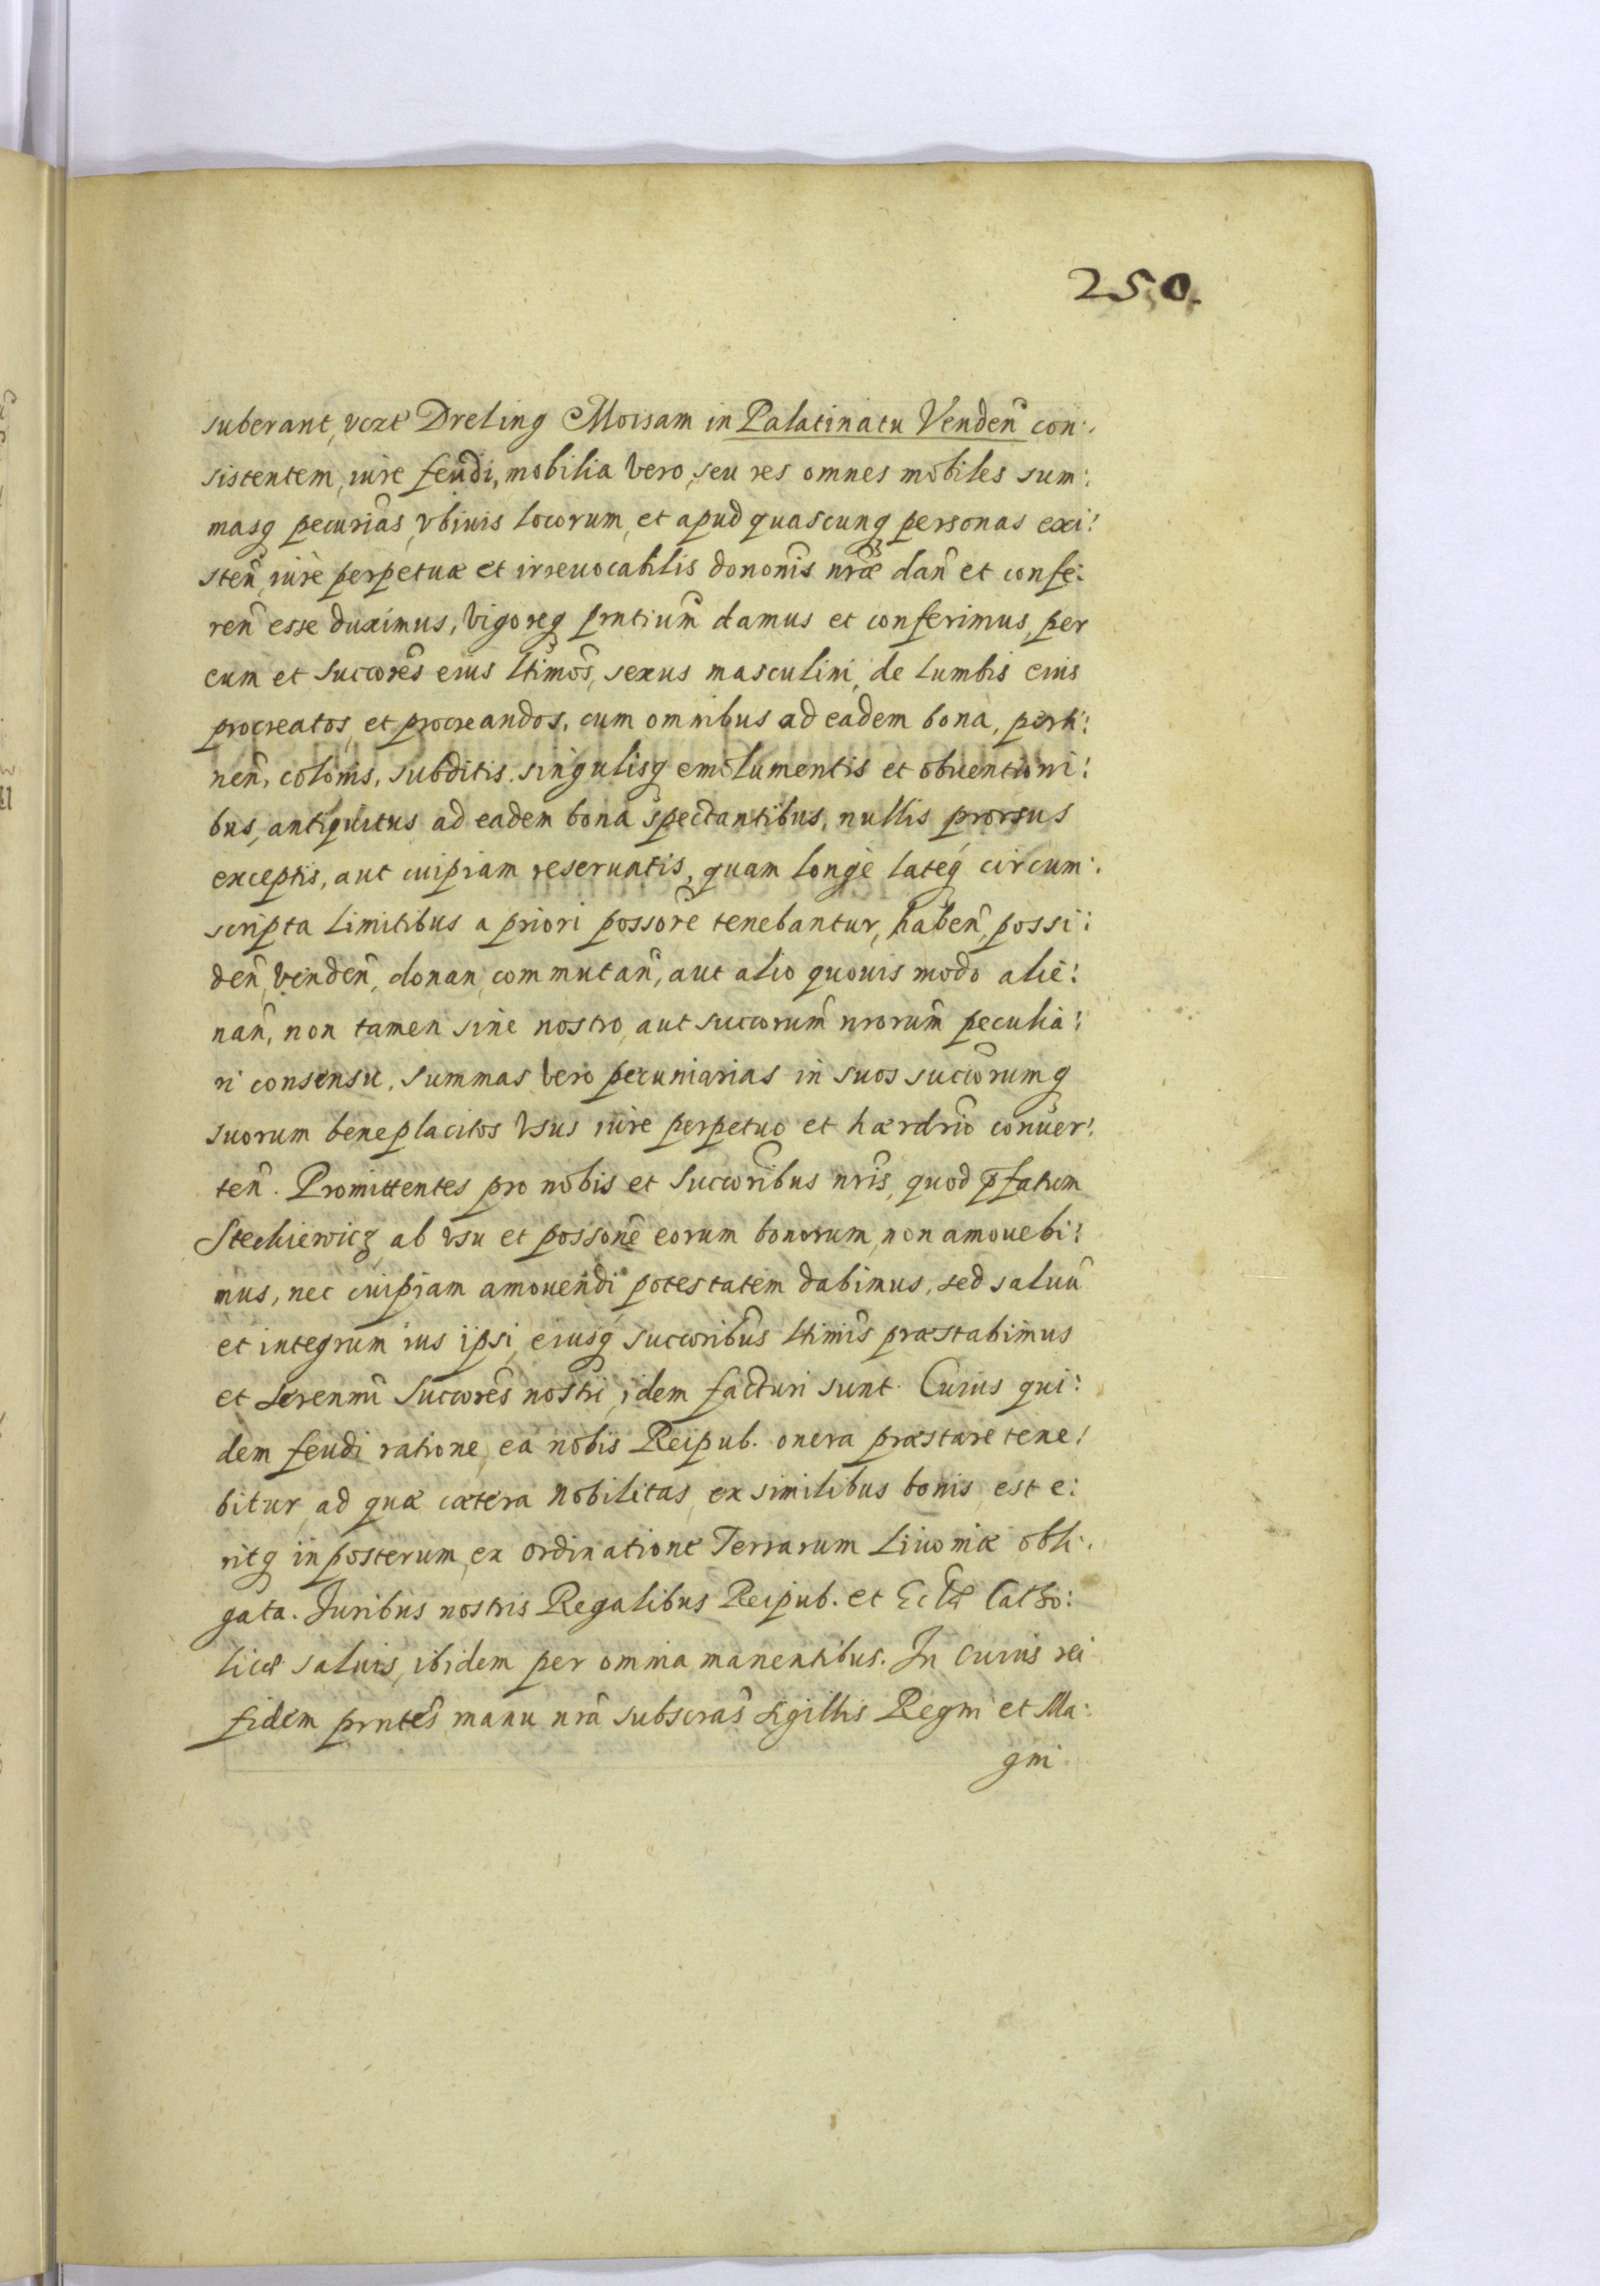 250.
suberant, vczt Dreling Moisam in Palatinatu Venden̄ con:
sistentem, iure feudi, mobilia vero, seu res omnes mobiles sum:
masq pecunias, vbiuis locorum, et apud quascunq personas exi:
sten̄, iure perpetuæ et irreuocabilis dononis nræ dan̄ et confe:
ren̄ esse duximus, vigoreq prntium̄ damus et conferimus, per
eum et succores̄ eius ltimos̄, sexus masculini, de lumbis eius
procreatos, et procreandos, cum omnibus ad eadem bona, perti:
nen̄, colonis, subditis, singulisq emolumentis et obuentioni:
bus, antiquitus ad eadem bona spectantibus, nullis prorsus
exceptis, aut cuipiam reseruatis, quam longè lateq́ circum:
scripta limitibus a priori possore tenebantur, haben̄, possi:
den̄, venden̄, donan, commutan̄, aut alio quouis modo alie:
nan̄, non tamen sine nostro, aut succorum̄ nrorum̄ peculia:
ri consensu, summas vero pecuniarias in suos succorumq̄
suorum beneplacitos vsus iure perpetuo et hærdrio conuer:
ten̄. Promittentes pro nobis et succoribus nris, quod p̄fatum
Steckiewicz ab vsu et possone eorum bonorum, non amouebi:
mus, nec cuipiam amouendi potestatem dabimus, sed saluū
et integrum ius ipsi, eiusq́ succoribus ltimis præstabimus
et serenmi succores̄ nostri, idem facturi sunt. Cuius qui:
dem feudi ratione, ea nobis Reipub. onera præstare tene:
bitur, ad quæ cætera nobilitas, ex similibus bonis, est e:
ritq in posterum, ex ordinatione Terrarum Liuoniæ obli:
gata. Juribus nostris Regalibus Reipub. et Eclæ Catho:
licæ saluis, ibidem per omnia manentibus. In cuius rei
fidem prntes̄ manu nrā subscras̄ sigillis Regni et Ma:
gni